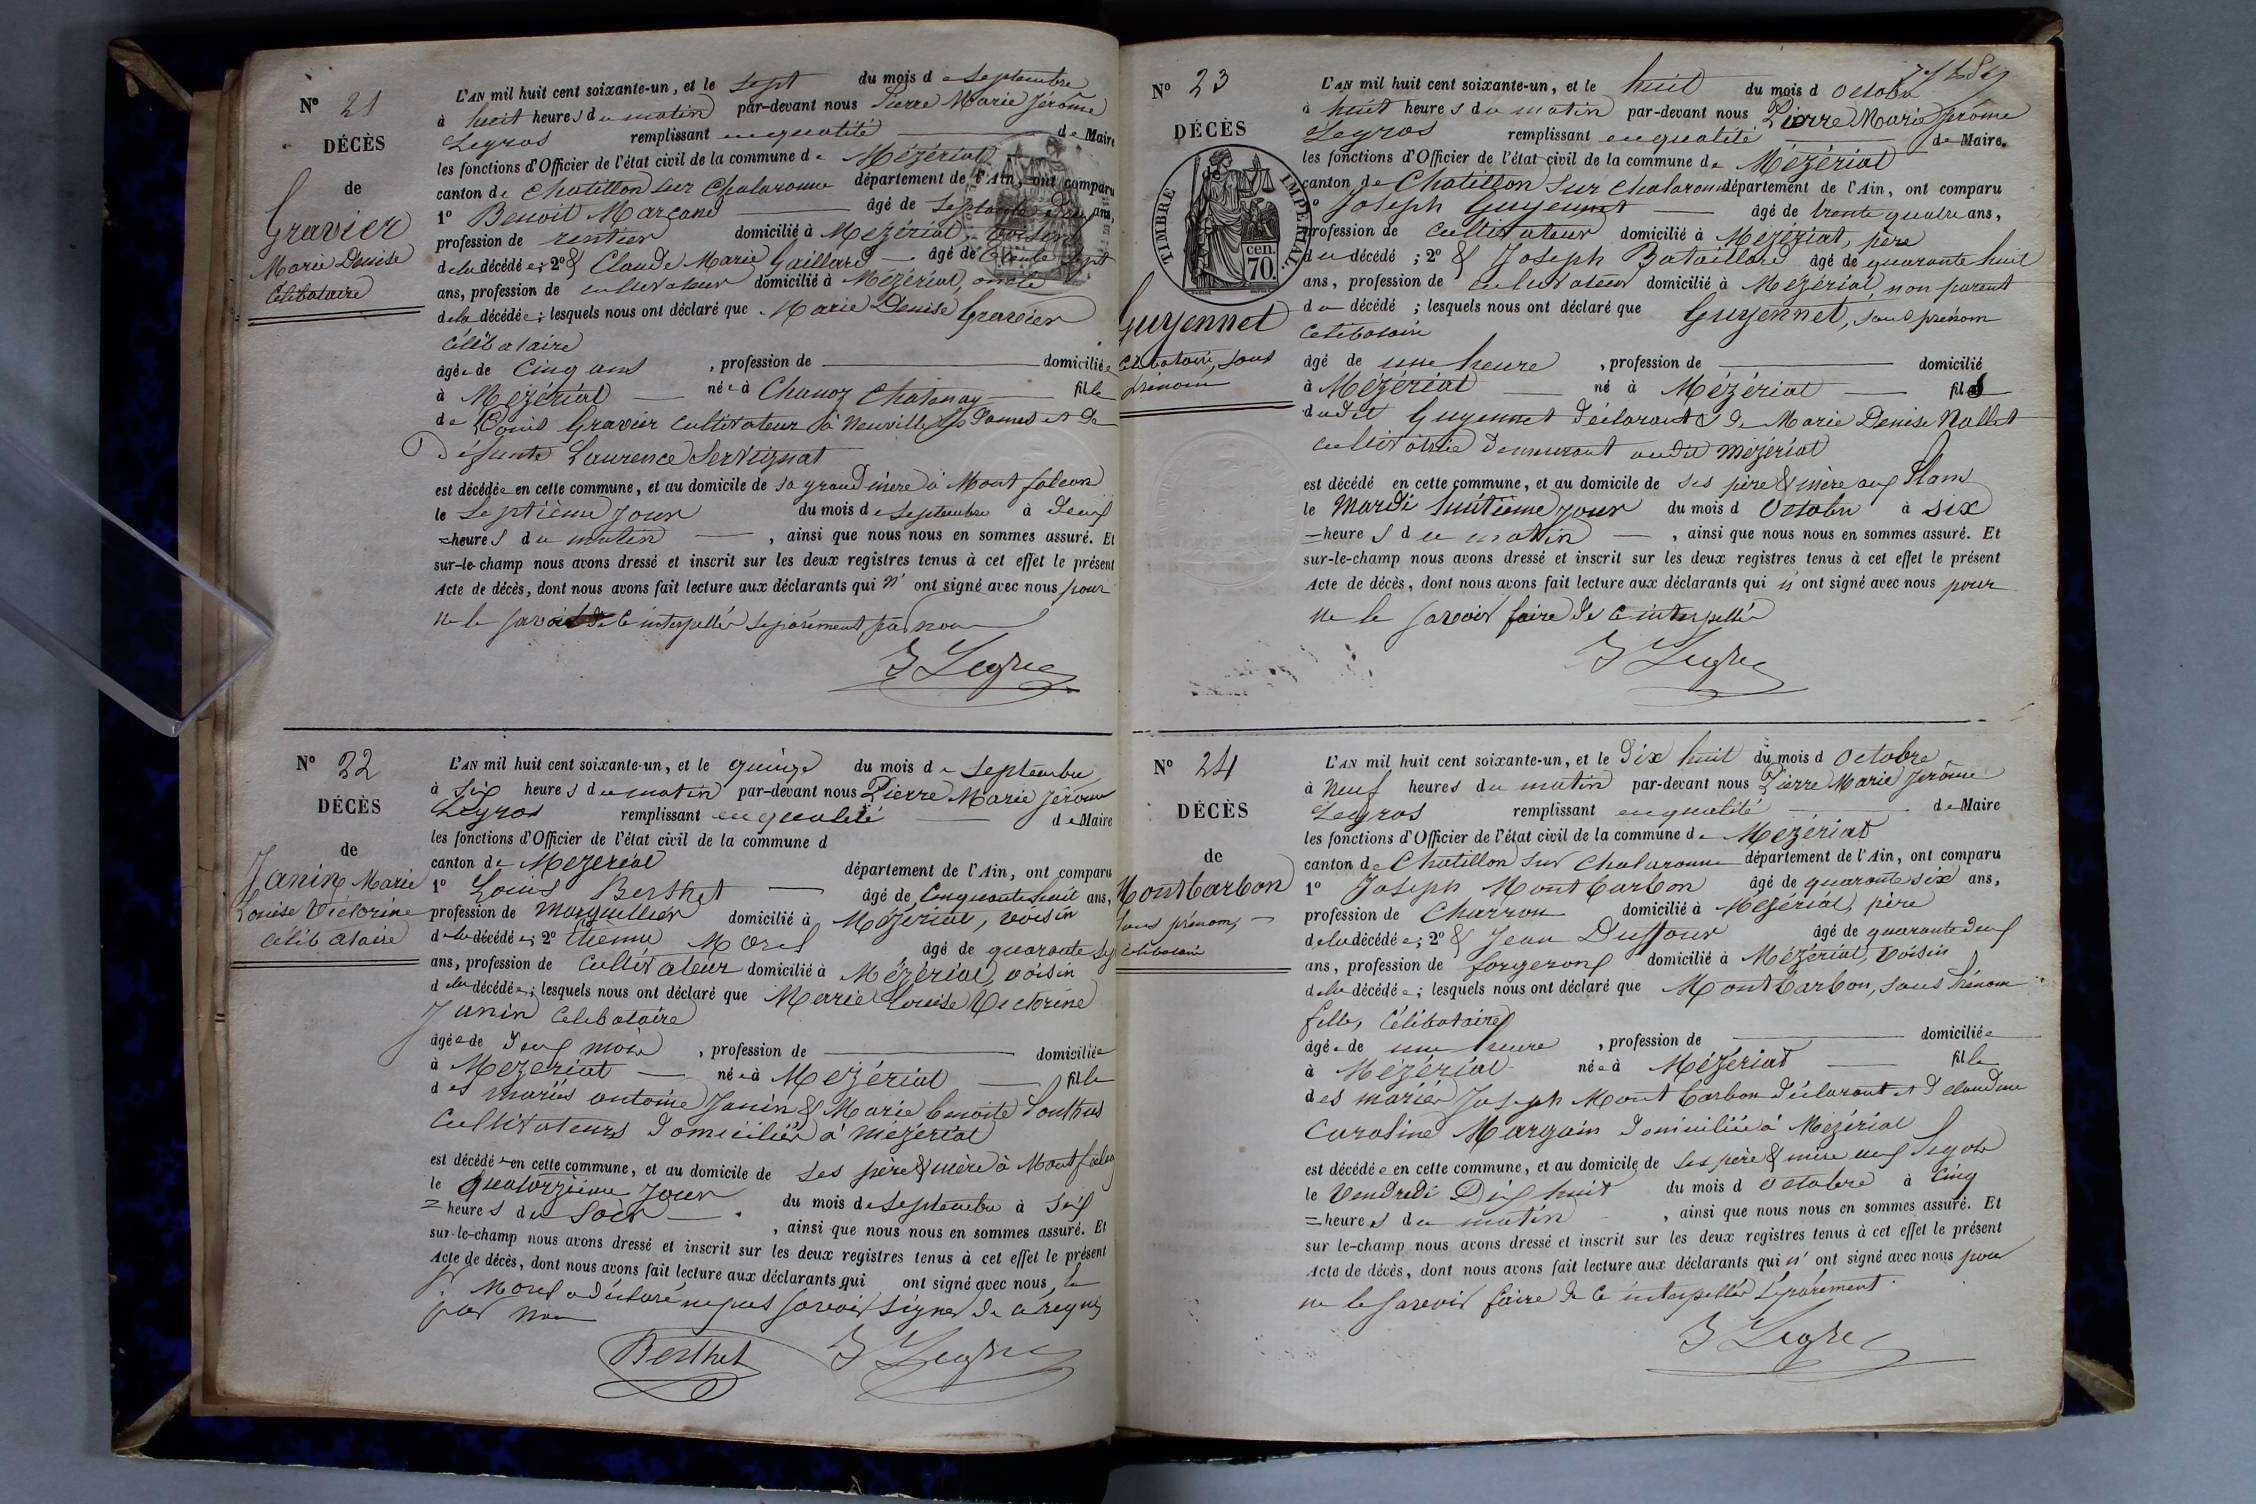 N° 21
DÉCÈS
de
Gravier
Marie Denise
Célibataire
L'AN mil huit cent soixante-un, et le sept du mois de Septembre
à huit heures du matin par-devant nous Pierre Marie Jérôme
Legros remplissant en qualité de Maire
les fonctions d'Officier de l'état civil de la commune de Mézériat
canton de Chatillon sur Chalaronne département de l'Ain, ont comparu
1° Benoit Marçand âgé de ans,
profession de rentier domicilié à Mézériat, voisin
de la décédée; 2° & Claude Marie Gaillard âgé de trente sept
ans, profession de cultivateur domicilié à Mézériat, oncle
de la décédée; lesquels nous ont déclaré que Marie Denise Gravier
célibataire
âgée de Cinq ans , profession de domiciliée
à Mézériat née à Chanoz Chatenay fille
de Louis Gravier cultivateur à Neuville les Dames et de
défunte Laurence Servignat
est décédée en cette commune, et au domicile de sa grand mère à Montfalcon
le Septième jour du mois de Septembre à deux
=heures du matin , ainsi que nous nous en sommes assuré. Et
sur-le-champ nous avons dressé et inscrit sur les deux registres tenus à cet effet le présent
Acte de décès, dont nous avons fait lecture aux déclarants qui n'ont signé avec nous pour
ne le savoir de ce interpellés séparément par nous
J Legros
N° 22
DÉCÈS
de
Janin Marie
Louise Victorine
célibataire
L'AN mil huit cent soixante-un, et le quinze du mois de Septembre
à six heures du matin par-devant nous Pierre Marie Jérôme
Legros remplissant en qualité de Maire
les fonctions d'Officier de l'état civil de la commune d
canton de Mézériat département de l'Ain, ont comparu
1° Louis Berthet âgé de cinquante huit ans,
profession de Marguillier domicilié à Mézériat, voisin
de la décédée; 2° Etienne Morel âgé de quarante six
ans, profession de cultivateur domicilié à Mézériat, voisin
de la décédée; lesquels nous ont déclaré que Marie Louise Victorine
Janin célibataire
âgée de deux mois , profession de domiciliée
à Mézériat née à Mézériat fille
des mariés antoine Janin & Marie benoite Ponthus
Cultivateurs domiciliés à Mézériat
est décédée en cette commune, et au domicile de ses père & mère à Montfalcon
le quatorzième jour du mois de Septembre à six
=heures du Soir , ainsi que nous nous en sommes assuré. Et
sur-le-champ nous avons dressé et inscrit sur les deux registres tenus à cet effet le présent
Acte de décès, dont nous avons fait lecture aux déclarants qui ont signé avec nous, le
Sr. Morel a déclaré ne pas savoir signer de ce requis
par nous
Berthet J Legros
N° 23
DÉCÈS
TIMBRE IMPÉRIAL
70 cen.
Guyennet
célibataire, sans
prénom
L'AN mil huit cent soixante-un, et le huit du mois d Octobre
à huit heures du matin par-devant nous Pierre Marie Jérôme
Legros remplissant en qualité de Maire.
les fonctions d'Officier de l'état civil de la commune de Mézériat
canton de Chatillon sur Chalaronne département de l'Ain, ont comparu
° Joseph Guyennet âgé de trente quatre ans,
profession de cultivateur domicilié à Mézériat, père
du décédé ; 2° & Joseph Bataillard âgé de quarante huit
ans, profession de cultivateur domicilié à Mézériat, non parent
du décédé ; lesquels nous ont déclaré que Guyennet, sans prénom
célibataire
âgé de une heure , profession de domicilié
à Mézériat né à Mézériat fils
dudit Guyennet déclarant & de Marie Denise Nallet
cultivatrice demeurant audit Mézériat
est décédé en cette commune, et au domicile de ses père & mère aux Plans
le Mardi huitième jour du mois d Octobre à six
=heures du matin , ainsi que nous nous en sommes assuré. Et
sur-le-champ nous avons dressé et inscrit sur les deux registres tenus à cet effet le présent
Acte de décès, dont nous avons fait lecture aux déclarants qui n'ont signé avec nous pour
ne le savoir faire de ce interpellés
J Legros
N° 24
DÉCÈS
de
Montbarbon
sans prénom,
célibataire
L'AN mil huit cent soixante-un, et le dix huit du mois d Octobre
à Neuf heures du matin par-devant nous Pierre Marie Jérôme
Legros remplissant en qualité de Maire
les fonctions d'Officier de l'état civil de la commune de Mézériat
canton de Chatillon sur Chalaronne département de l'Ain, ont comparu
1° Joseph Montbarbon âgé de quarante six ans,
profession de Charron domicilié à Mézériat, père
de la décédée; 2° & Jean Duffour âgé de quarante deux
ans, profession de forgeron domicilié à Mézériat, voisin
de la décédée; lesquels nous ont déclaré que Montbarbon, sans prénom
fille, célibataire
âgée de une heure , profession de domiciliée
à Mézériat née à Mézériat fille
des mariés Joseph Montbarbon déclarant et de claudine
Caroline Margain domiciliée à Mézériat
est décédée en cette commune, et au domicile de ses père & mère aux
le Vendredi Dix huit du mois d Octobre à cinq
=heures du matin , ainsi que nous nous en sommes assuré. Et
sur le-champ nous avons dressé et inscrit sur les deux registres tenus à cet effet le présent
Acte de décès, dont nous avons fait lecture aux déclarants qui n'ont signé avec nous pour
ne le savoir faire de ce interpellés séparément.
J Legros